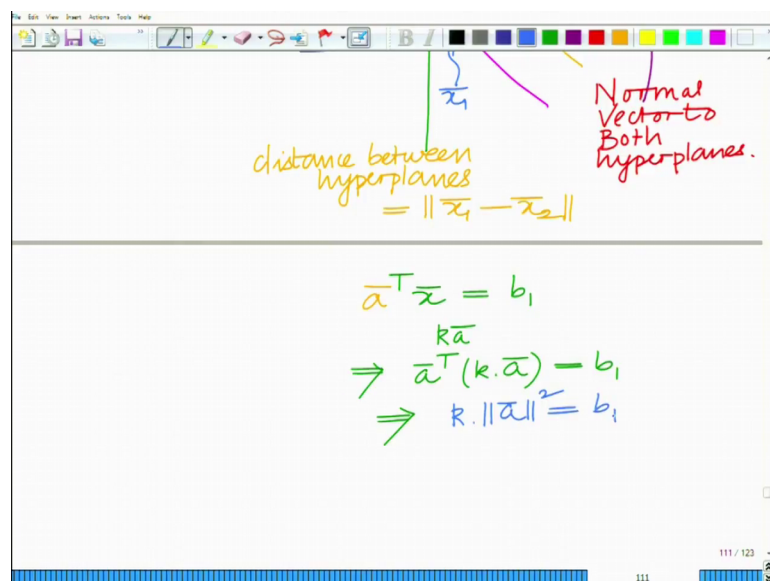 File Edit View Insert Actions Tools Help
B I
x̄₁
Normal
Vector to
Both
hyperplanes.
distance between
hyperplanes
= ||x̄₁ − x̄₂||
āᵀx̄ = b₁
kā
⇒ āᵀ(k.ā) = b₁
⇒ k.||ā||² = b₁
111 / 123
111